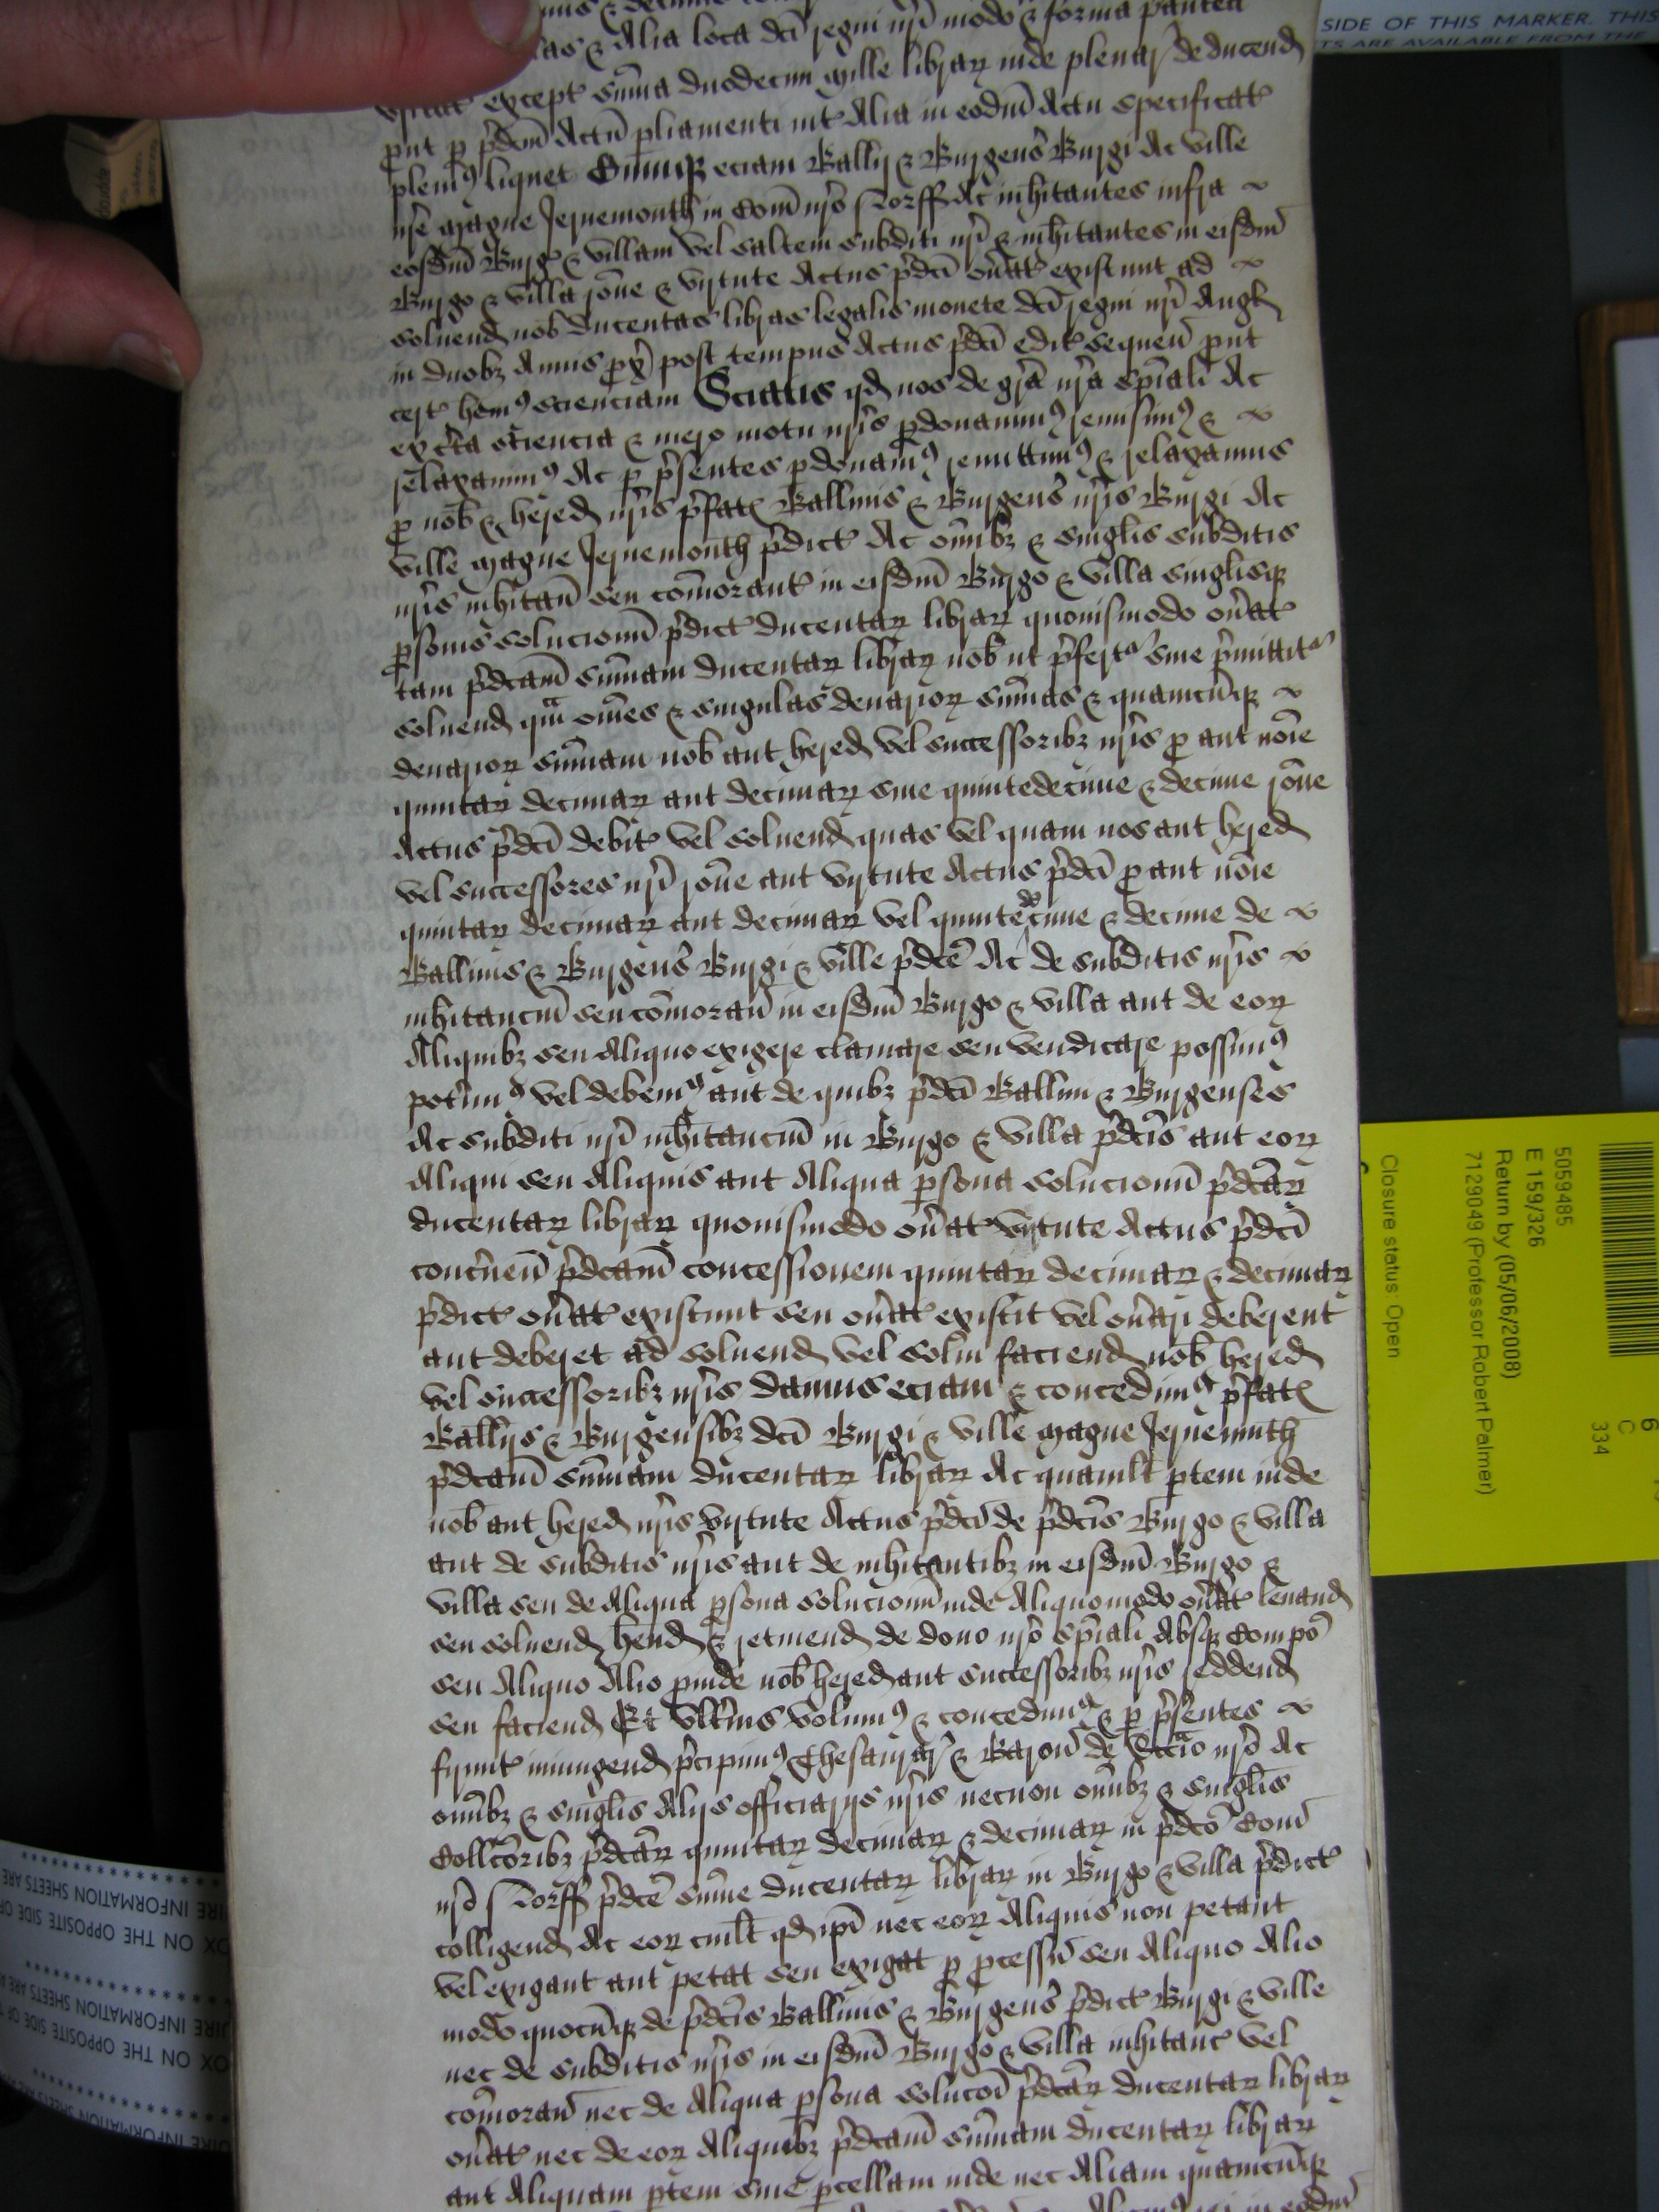 las & Alia loca dc̄i regni nr̄i modo & forma p antea
vsitat except sum̄a duodecim mille librar inde plenar deducend
put p p̄dcm̄ Actū pliamenti int Alia in eodm̄ Actu specificat
pleni9 liquet Cumq eciam Ballij & Burgens Burgi Ac ville
nr̄e magne Jernemouth in Com̄ nr̄o Norff Ac inh̄itantes infra
eosdm̄ Burg & villam vel saltem subditi nr̄i & inh̄itantes in eisdm̄
Burgo & villa rōne & virtute Actus p̄dc̄i on̄at existunt ad
soluend nob̄ ducentas libras legalis monete dc̄i regni nr̄i Angl
in duobz Annis px̄ post tempus Actus p̄dc̄i edit sequen̄ put
cert hem9 scienciam Sciatis qd nos de gr̄a nr̄a sp̄iali Ac
ex c̄ta sciencia & mero motu nr̄is pdonauim9 remisim9 &
relaxauim9 Ac p p̄sentes pdonam9 remittim9 & relaxamus
p nob̄ & hered nr̄is p̄fat Balliuis & Burgens nr̄is Burgi Ac
ville magne Jernemouth p̄dict Ac om̄ibz & singlis subditis
nr̄is inh̄itan̄ seu com̄orant in eisdm̄ Burgo & villa singlisq
psonis solucionū p̄dict ducentar librar quouismodo on̄at
tam p̄dcam̄ sum̄am ducentar librar nob̄ ut p̄fert siue p̄mittit
soluend qm̄ om̄es & singulas denarior sum̄as & quamcūq
denarior sum̄am nob̄ aut hered vel successoribz nr̄is p aut nōie
quintar decimar aut decimar siue quintedecime & decime rōne
Actus p̄dc̄i debit vel soluend quas vel quam nos aut hered
vel successores nr̄i rōne aut virtute Actus p̄dc̄i p aut nōie
quintar decimar aut decimar vel quintedecime & decime de
Balliuis & Burgens Burgi & ville p̄dcē Ac de subditis nr̄is
inh̄itanciū seu com̄oran̄ in eisdm̄ Burgo & villa aut de eor
Aliquibz seu Aliquo exigere clamare seu vendicare possim9
pot̄im9 vel debem9 aut de quibz p̄dc̄i Balliui & Burgenses
Ac subditi nr̄i inh̄itanciū in Burgo & villa p̄dcis aut eor
Aliqui seu Aliquis aut Aliqua psona solucionū p̄dcar
ducentar librar quouismodo on̄at virtute Actus p̄dc̄i
conc̄nen̄ p̄dcam̄ concessionem quintar decimar & decimar
p̄dict on̄at existunt seu on̄at existit vel on̄ari deberent
aut deberet ad soluend vel solui faciend nob̄ hered
vel successoribz nr̄is damus eciam & concedim9 p̄fat
Ballijs & Burgensibz dc̄i Burgi & ville magne Jernemuth
p̄dcam̄ sum̄am ducentar librar Ac quamlt ptem inde
nob̄ aut hered nr̄is virtute Actus p̄dc̄i de p̄dcis Burgo & villa
aut de subditis nr̄is aut de inh̄itantibz in eisdm̄ Burgo &
villa seu de Aliqua psona solucionū inde Aliquomodo on̄at leuand
seu soluend hend & retinend de dono nr̄o sp̄iali Absq Compo
seu Aliquo Alio pinde nob̄ hered aut successoribz nr̄is reddend
seu faciend Et vlt̄ius volum9 & concedim9 & p p̄sentes
firmit iniungend p̄cipim9 Thesaurar & Baron̄ de Sccio nr̄o Ac
om̄ibz & singlis Alijs officiarijs nr̄is necnon om̄ibz & singlis
Collcoribz p̄dcar quintar decimar & decimar in p̄dco Com̄
nr̄o Norff p̄dcē sum̄e ducentar librar in Burgo & villa p̄dict
colligend Ac eor cuilt qd ip̄i nec eor Aliquis non petant
vel exigant aut petat seu exigat p pcessū seu Aliquo Alio
modo quocūq de p̄dcis Balliuis & Burgens p̄dict Burgi & ville
nec de subditis nr̄is in eisdm̄ Burgo & villa inh̄itanc vel
com̄oran̄ nec de Aliqua psona solucōi p̄dcar ducentar librar
on̄at nec de eor Aliquibz p̄dcam̄ sum̄am ducentar librar
aut Aliquam ptem siue pcellam inde nec Aliam quamcūq
SIDE OF THIS MARKER. THIS
TS ARE AVAILABLE FROM THE
5059485
E 159/326
Return by (05/06/2008)
7129049 (Professor Robert Palmer)
Closure status: Open
6
C
334
INFORMATION SHEETS ARE
OX ON THE OPPOSITE SIDE OF